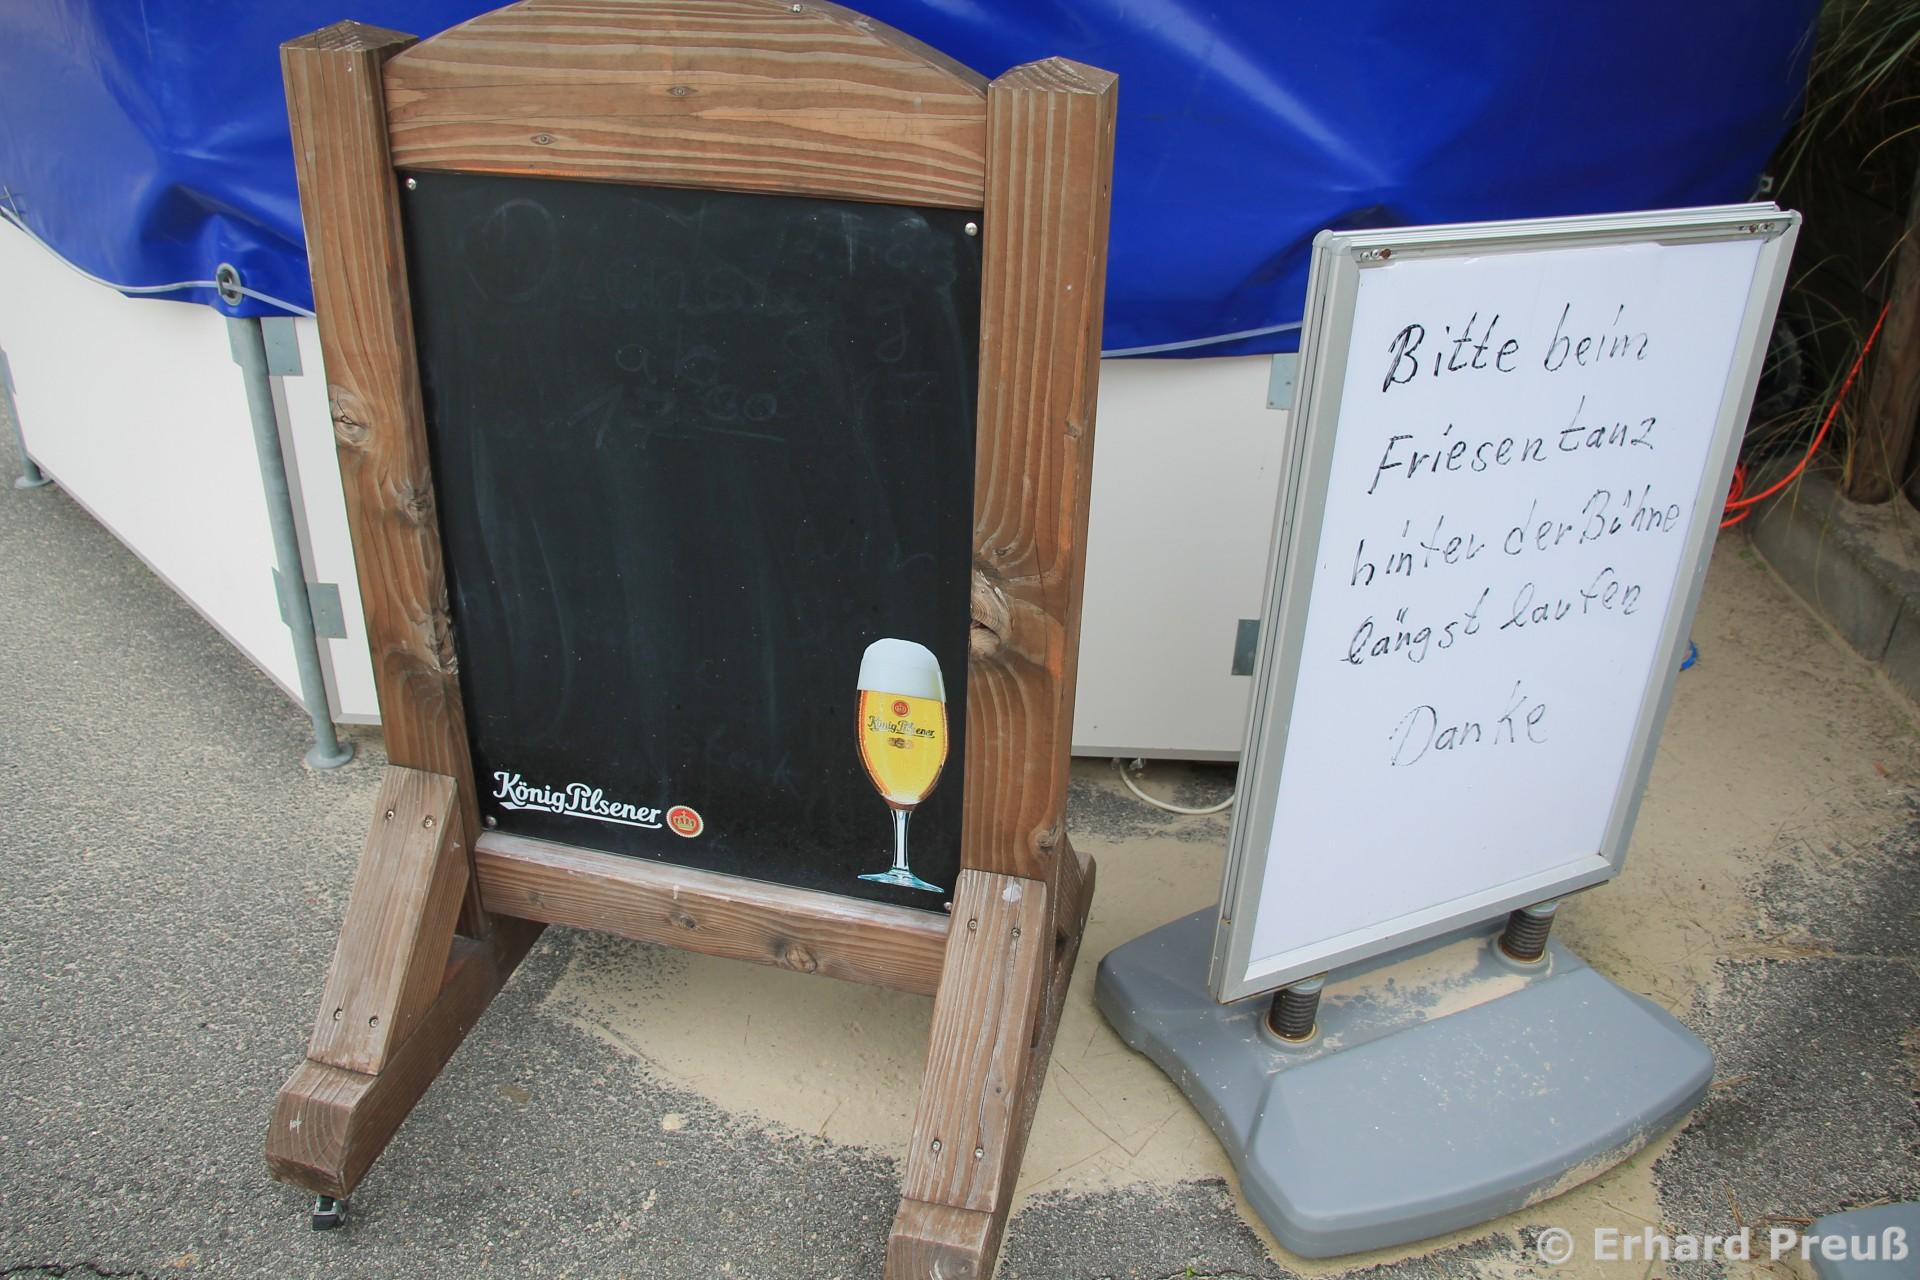 König Pilsener
König Pilsener
Bitte beim
Friesentanz
hinter der Bühne
längst laufen
Danke
© Erhard Preuß